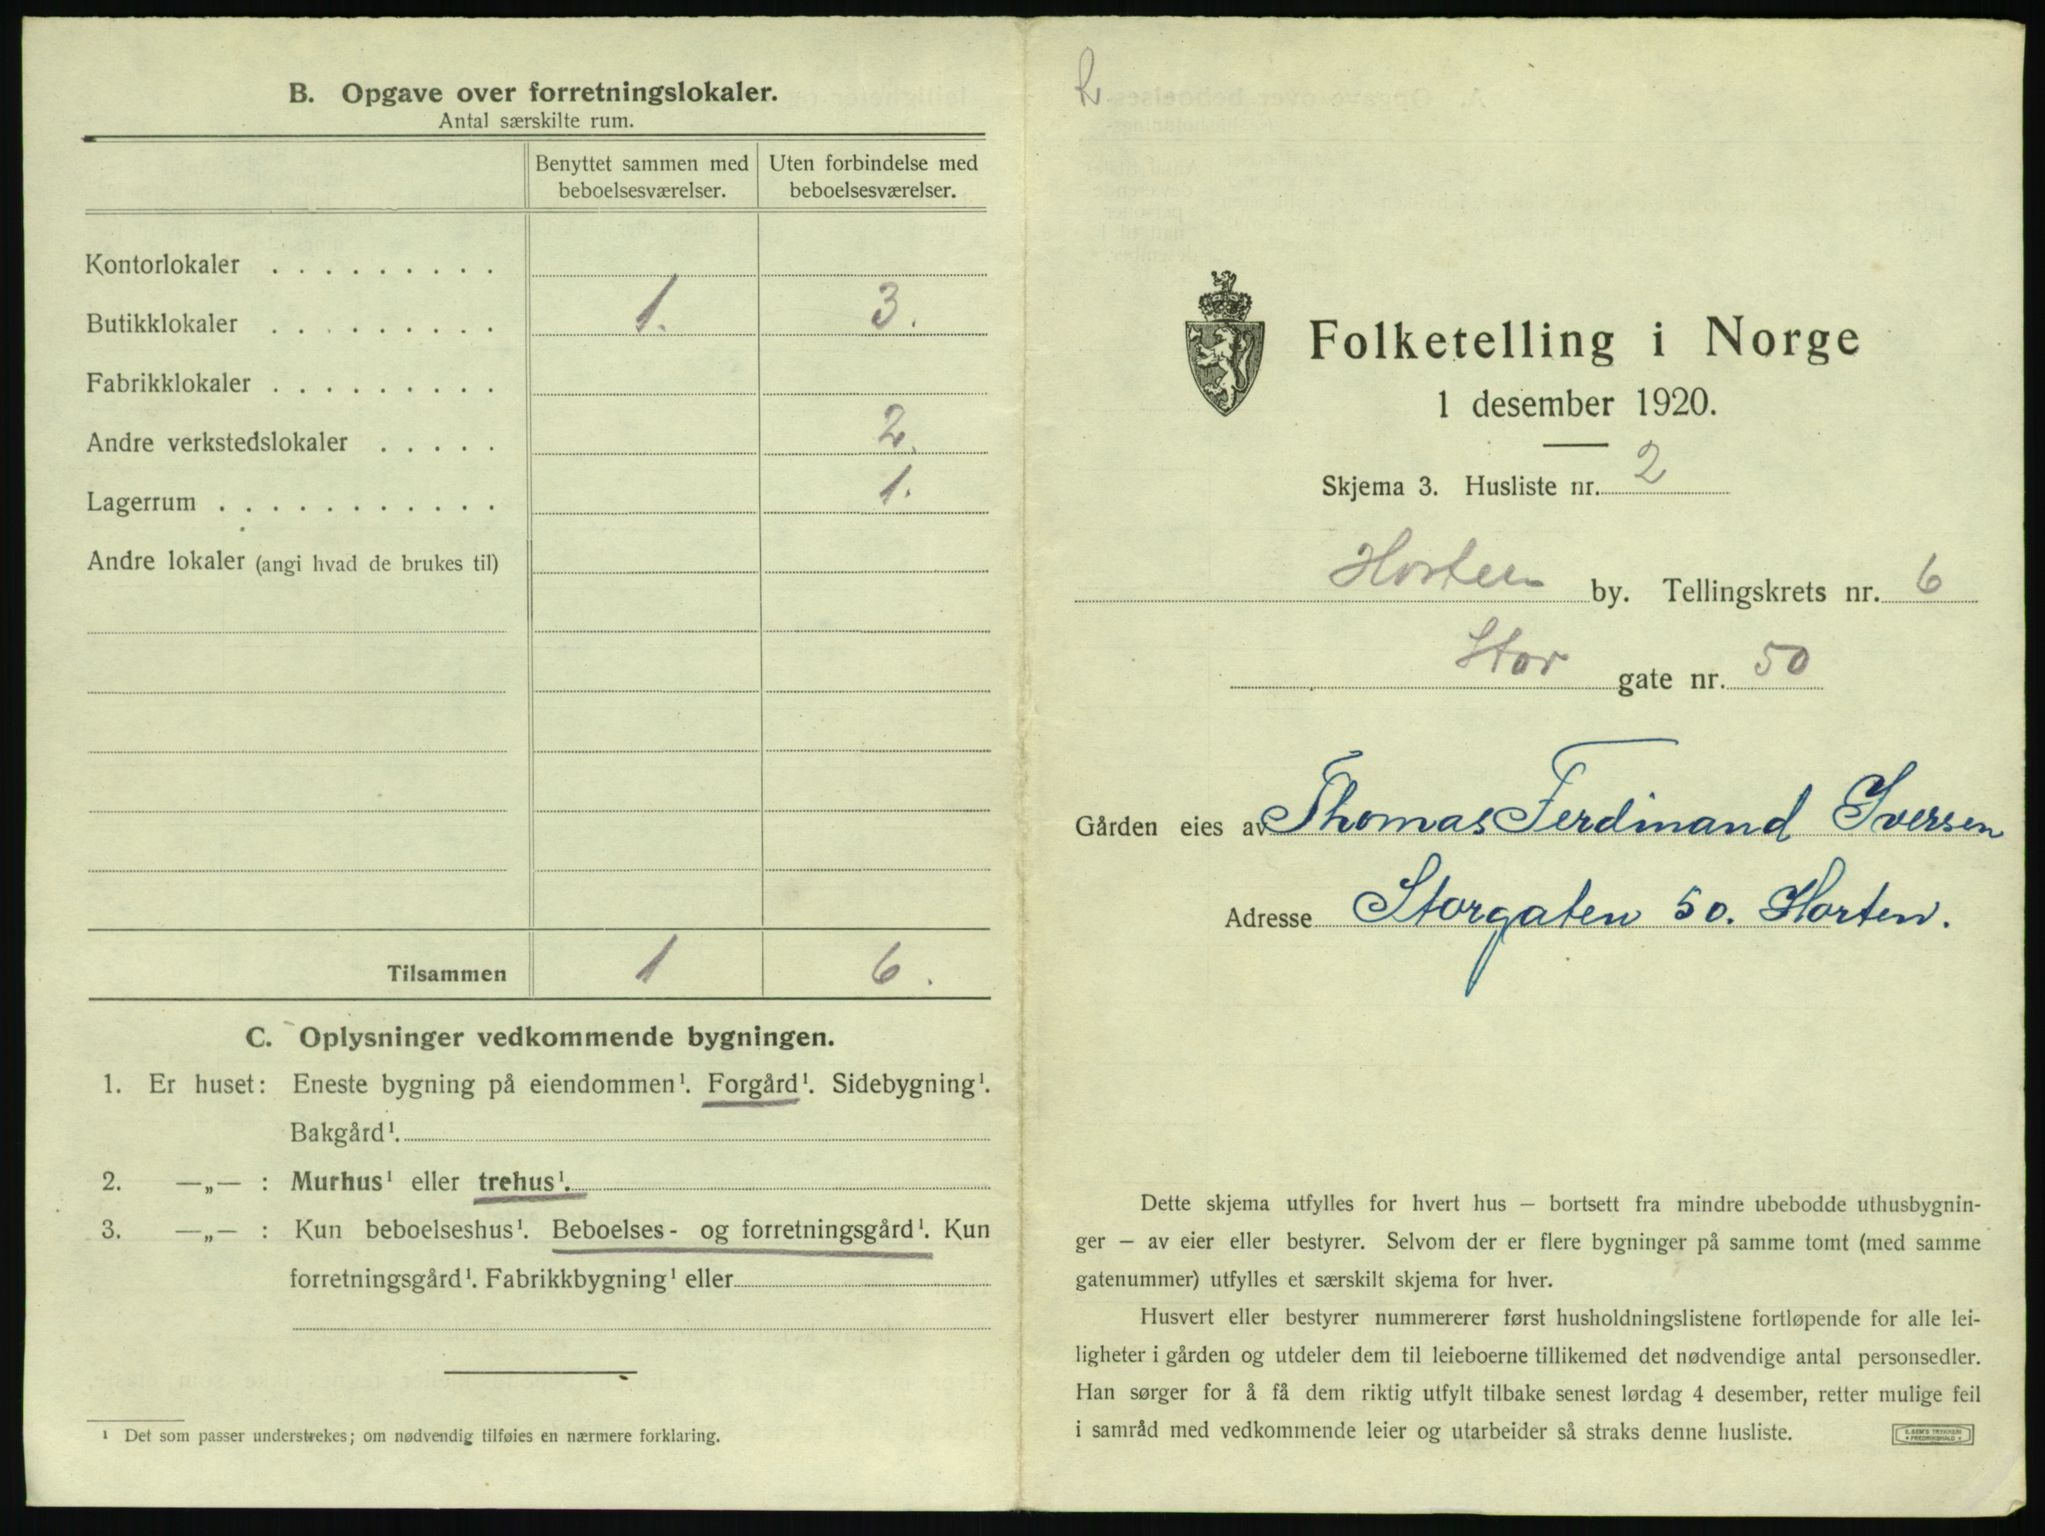 B. Opgave over forretningslokaler.
Antal særskilte rum.
Benyttet sammen med beboelsesværelser.
Uten forbindelse med beboelsesværelser.
Kontorlokaler . . . . . . . . .
Butikklokaler . . . . . . . . . 1. 3.
Fabrikklokaler . . . . . . . . .
Andre verkstedslokaler . . . . . 2.
Lagerrum . . . . . . . . . . . 1.
Andre lokaler (angi hvad de brukes til)
Tilsammen 1 6.
C. Oplysninger vedkommende bygningen.
1. Er huset: Eneste bygning på eiendommen¹. Forgård¹. Sidebygning¹.
Bakgård¹.
2. —„— : Murhus¹ eller trehus¹.
3. —„— : Kun beboelseshus¹. Beboelses- og forretningsgård¹. Kun
forretningsgård¹. Fabrikkbygning¹ eller
¹ Det som passer understrekes; om nødvendig tilføies en nærmere forklaring.
Folketelling i Norge
1 desember 1920.
Skjema 3. Husliste nr. 2
Horten by. Tellingskrets nr. 6
Stor gate nr. 50
Gården eies av Thomas Ferdinand Iversen
Adresse Storgaten 50. Horten.
Dette skjema utfylles for hvert hus – bortsett fra mindre ubebodde uthusbygnin-
ger – av eier eller bestyrer. Selvom der er flere bygninger på samme tomt (med samme
gatenummer) utfylles et særskilt skjema for hver.
Husvert eller bestyrer nummererer først husholdningslistene fortløpende for alle lei-
ligheter i gården og utdeler dem til leieboerne tillikemed det nødvendige antal personsedler.
Han sørger for å få dem riktig utfylt tilbake senest lørdag 4 desember, retter mulige feil
i samråd med vedkommende leier og utarbeider så straks denne husliste.
E. SEM'S TRYKKERI
FREDRIKSHALD